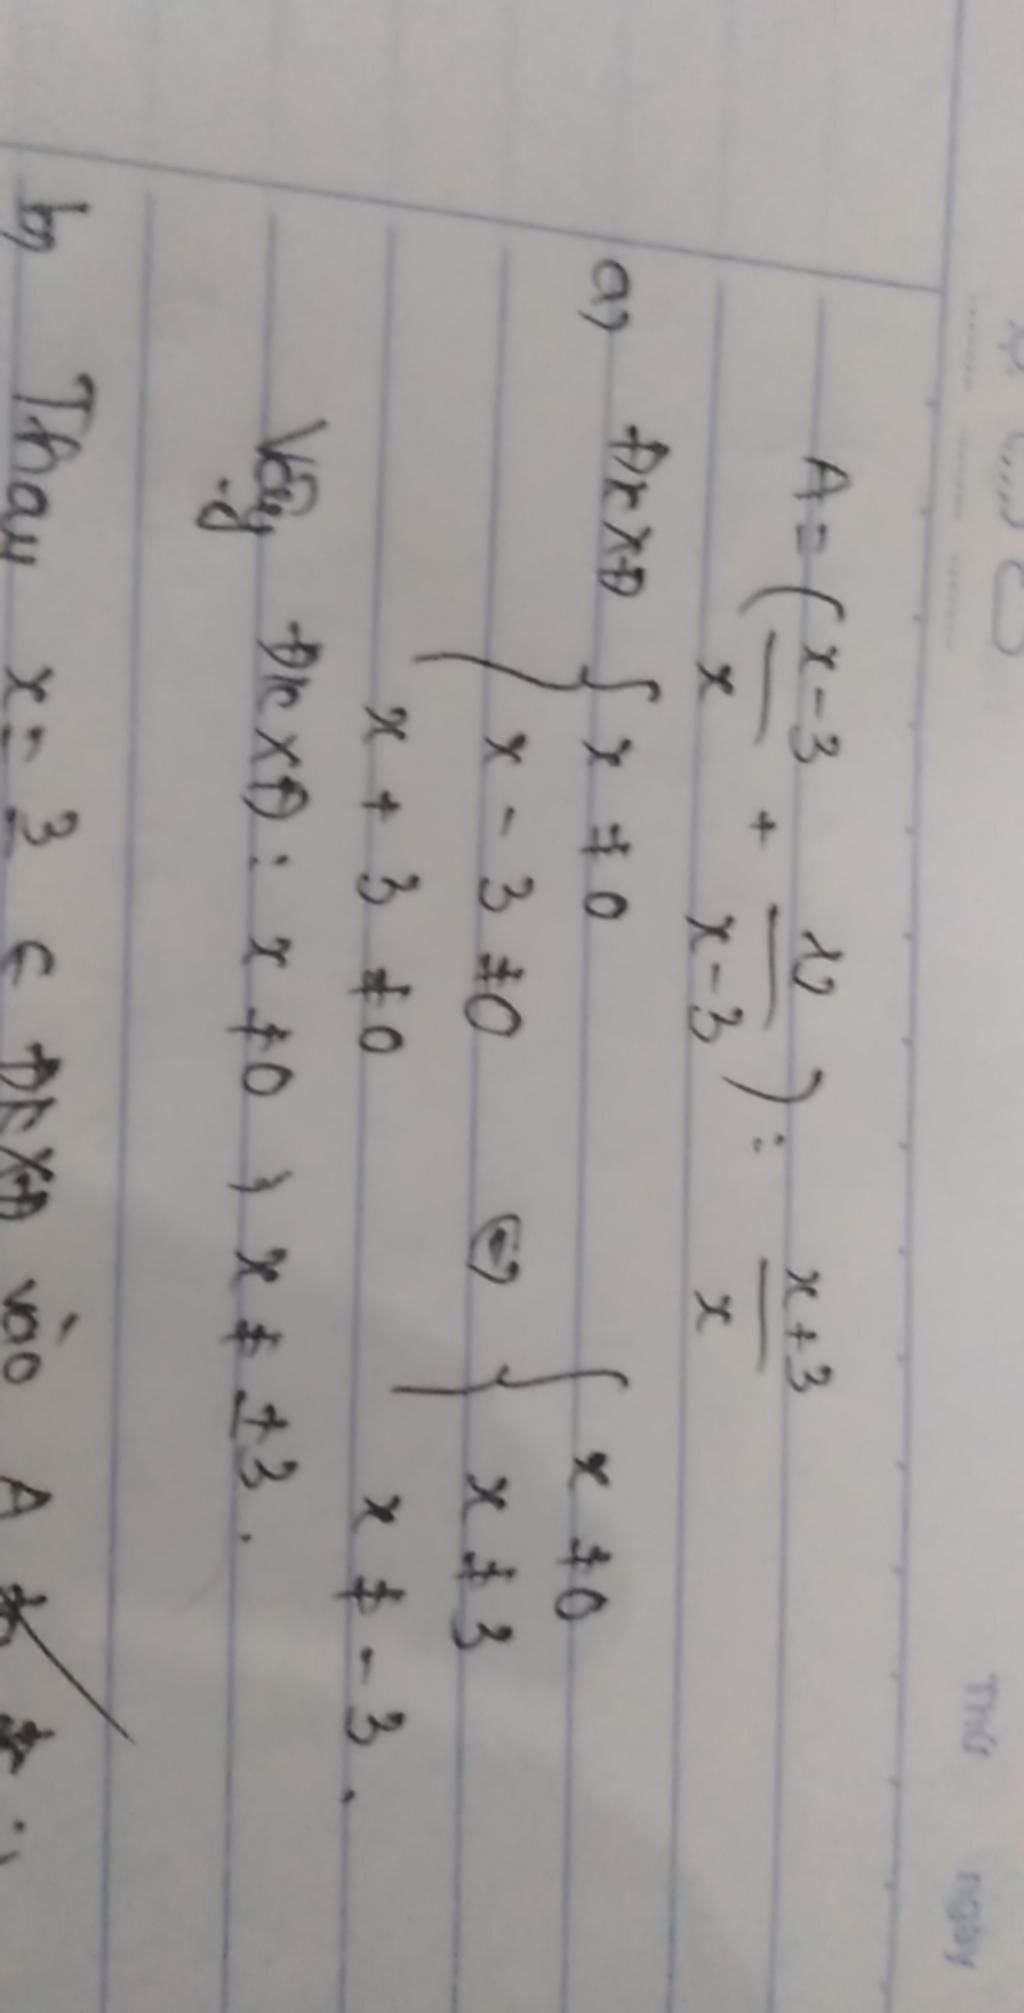 Thứ ngày
A = (x-3/x + x/x-3) : x+3/x
a, ĐKXĐ { x ≠ 0 x - 3 ≠ 0 x + 3 ≠ 0 ⇔ { x ≠ 0 x ≠ 3 x ≠ -3.
Vậy ĐKXĐ: x ≠ 0; x ≠ ±3.
b, Thay x = 3 ∈ ĐKXĐ vào A